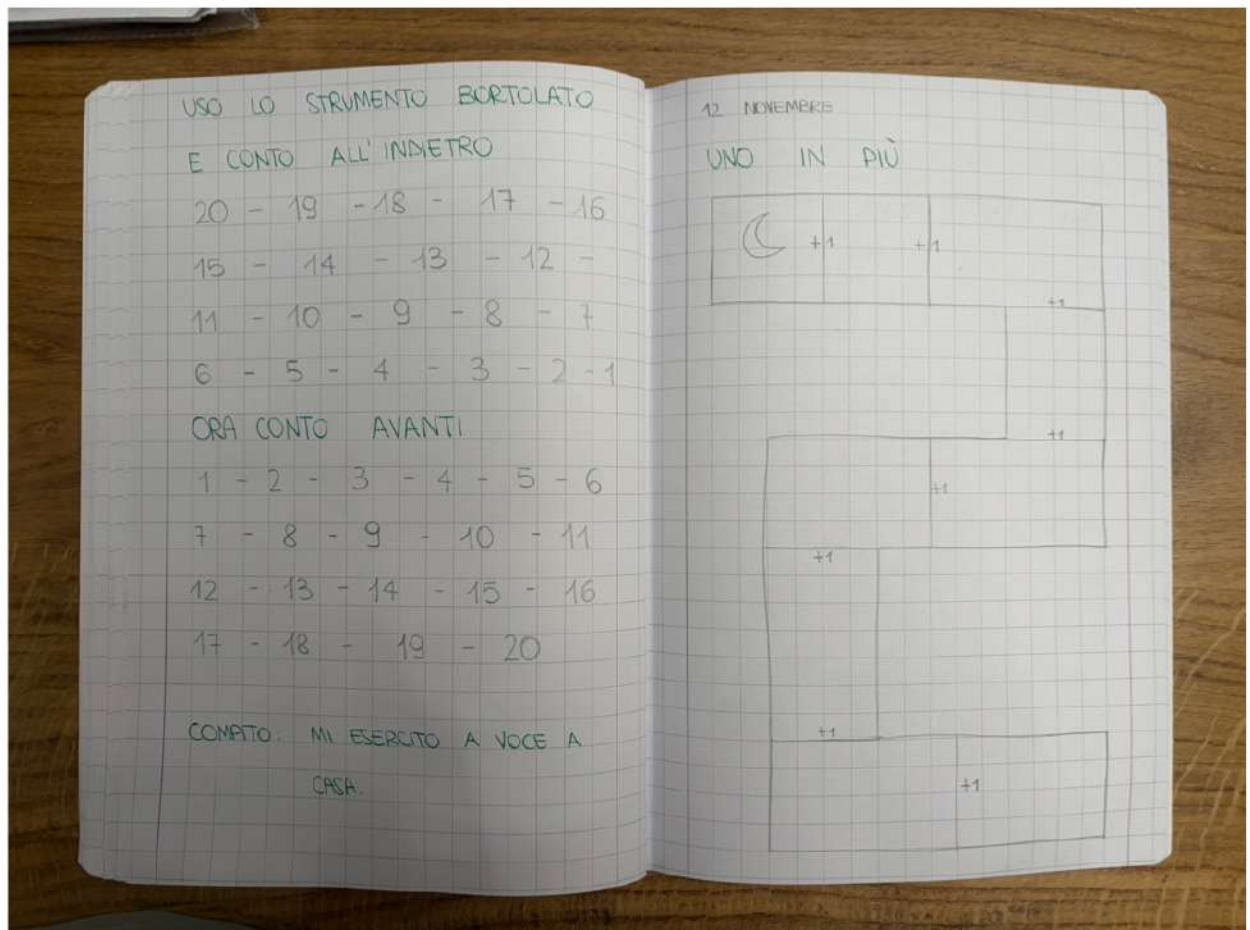 USO LO STRUMENTO BORTOLATO
E CONTO ALL'INDIETRO
20 - 19 - 18 - 17 - 16
15 - 14 - 13 - 12 -
11 - 10 - 9 - 8 - 7
6 - 5 - 4 - 3 - 2 - 1
ORA CONTO AVANTI
1 - 2 - 3 - 4 - 5 - 6
7 - 8 - 9 - 10 - 11
12 - 13 - 14 - 15 - 16
17 - 18 - 19 - 20
COMPITO: MI ESERCITO A VOCE A
CASA.
12 NOVEMBRE
UNO IN PIÙ
+1 +1
+1
+1
+1
+1
+1
+1